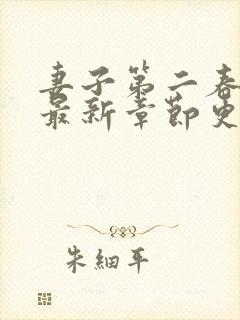 妻子第二春
最新章節史
朱細平